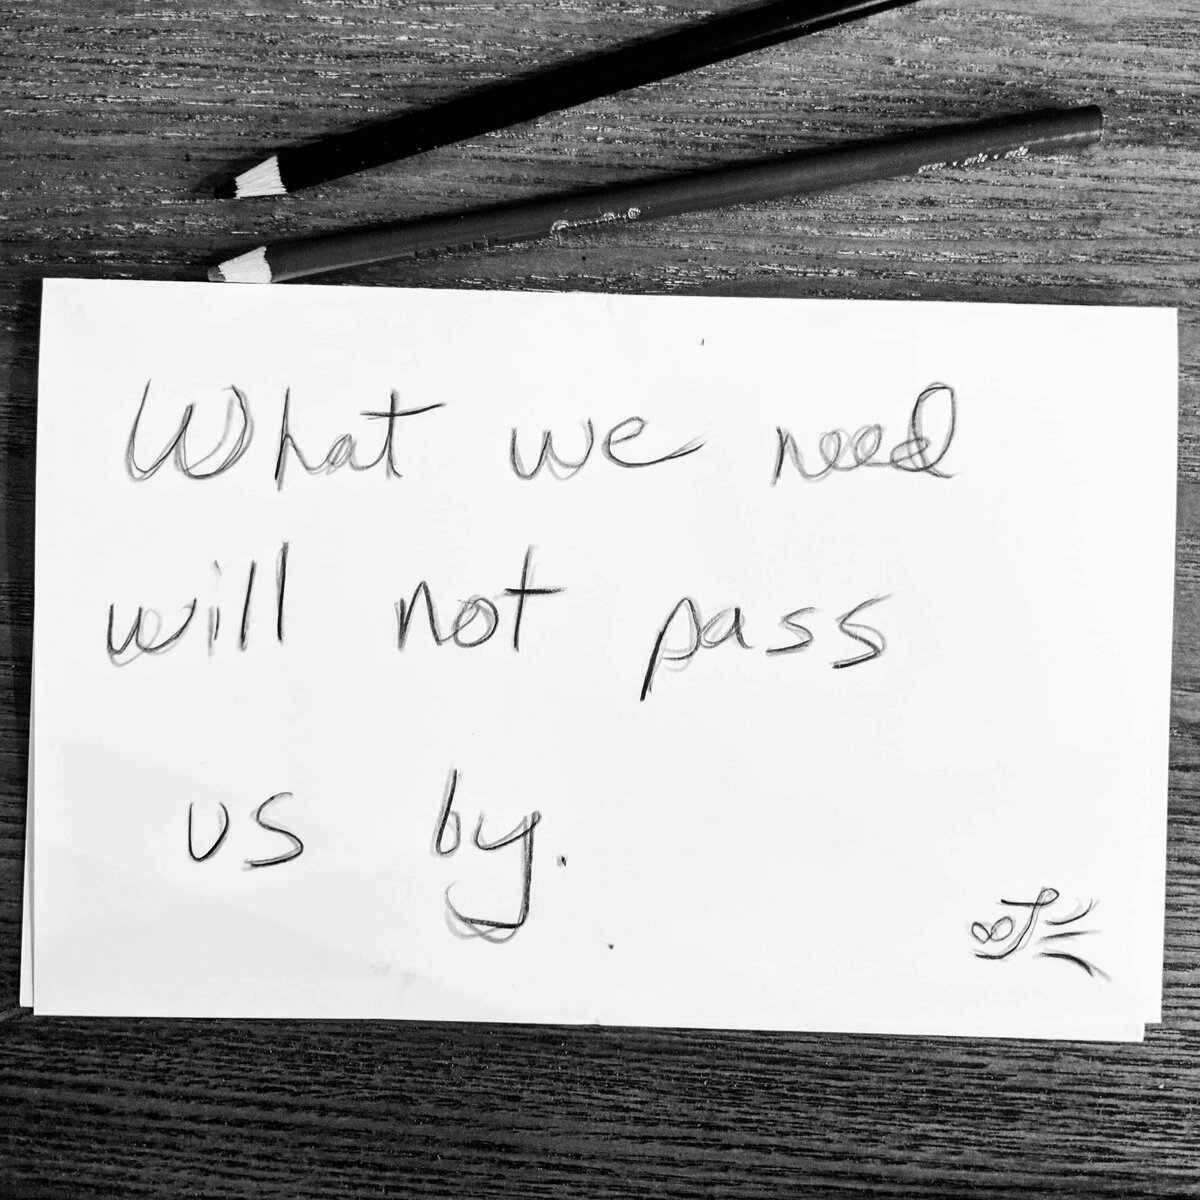 What we need
will not pass
us by.